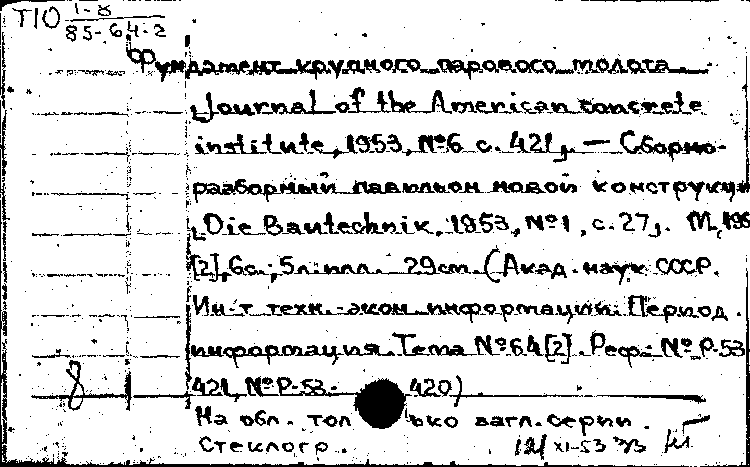 Т10 1-8
85-64-2
Фундамент крупного парового молота.
„Journal of the American concrete
institute, 1953, №6 с. 421„. — Сборно-
разборный павильон новой конструкции
„Die Bautechnik, 1953, №1, с. 27„. М, 195
[2], 6с.; 5л. илл. 29см. (Акад. наук СССР.
Ин-т техн.-экон. информации. Период.
информация. Тема №64[2]. Реф.: №Р-53
421, №Р-53- 420)
8
На обл. тол ько загл. серии.
Стеклогр.
XI-53